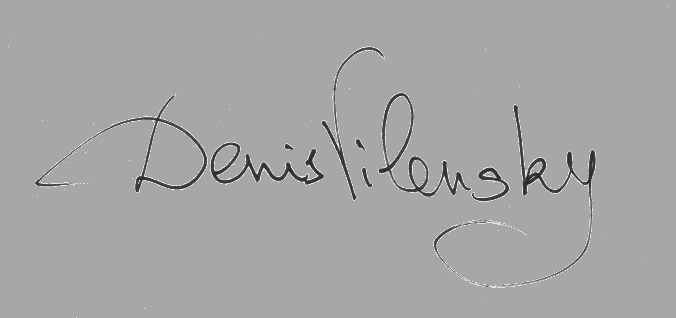 Denis Vilensky